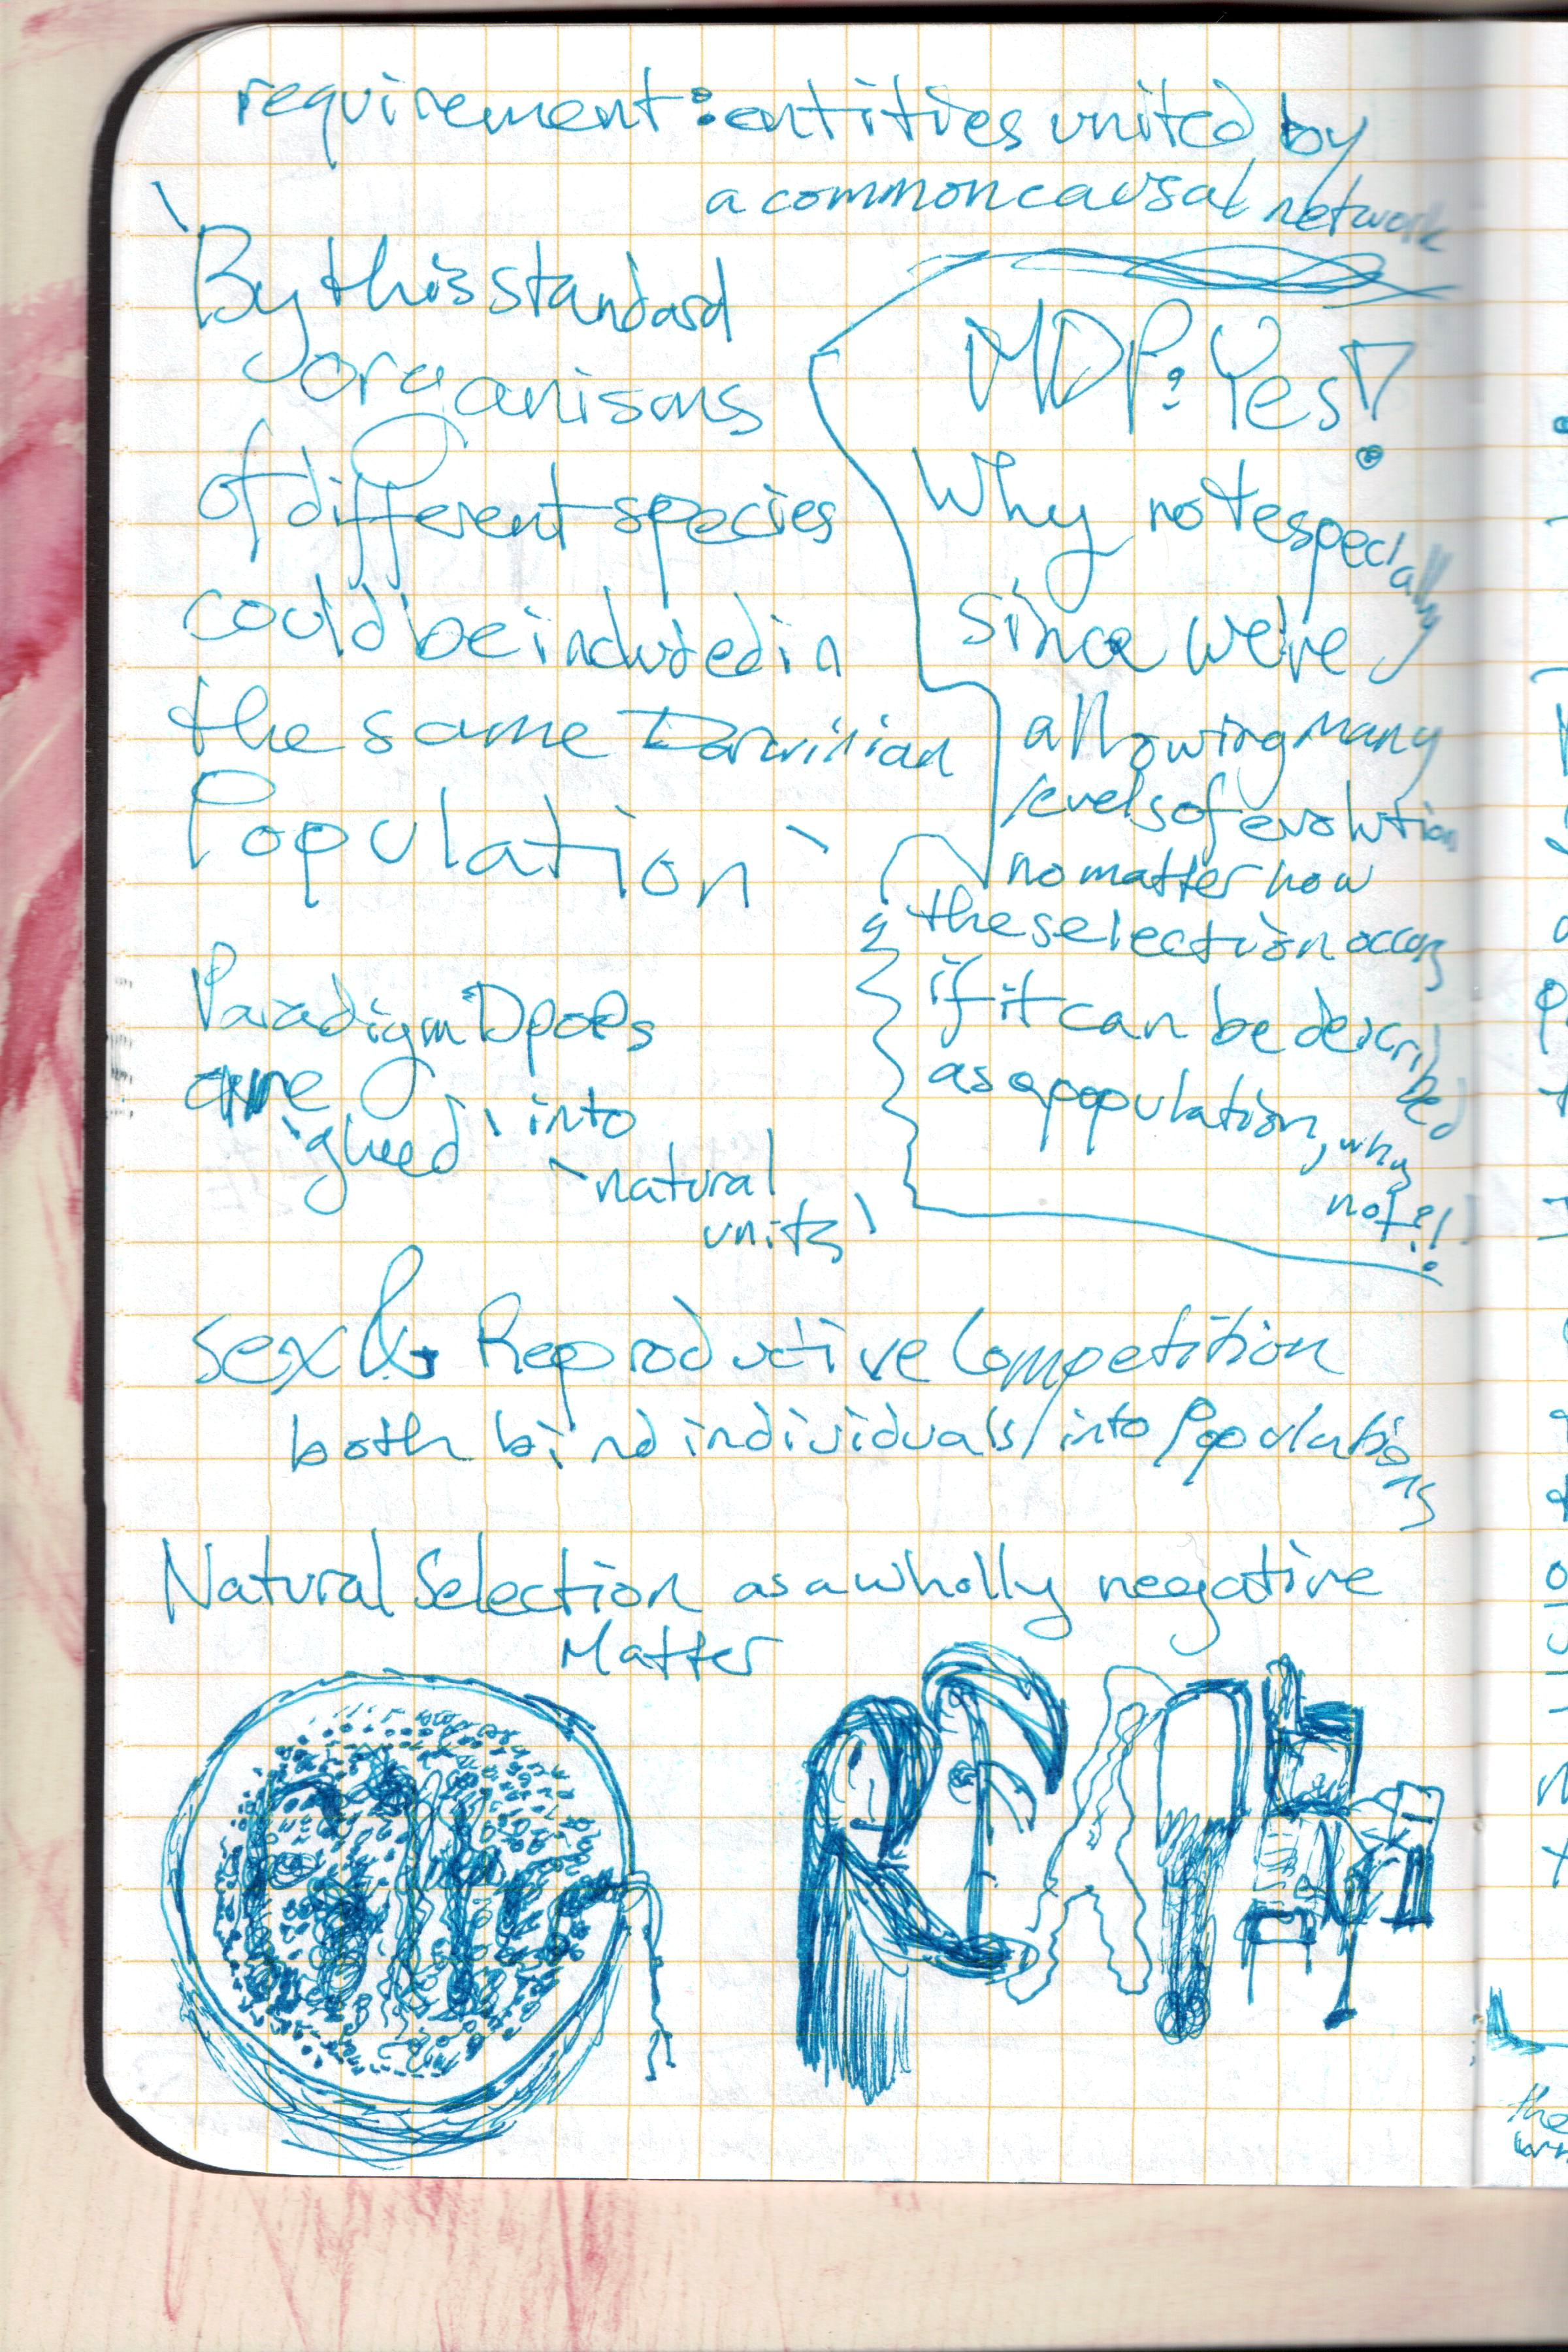 requirement: entities united by
a common causal network
`By this standard
organisms
of different species
could be included in
the same Darwinian
Population`
MDP: Yes!
Why not especially
since we're
allowing many
levels of evolution
no matter how
the selection occurs
if it can be described
as a population, why
not?!
Paradigm Dpops
are
`glued` into
`natural
units'
Sex & Reproductive Competition
both bind individuals into Populations
Natural Selection as a wholly negative
Matter
the